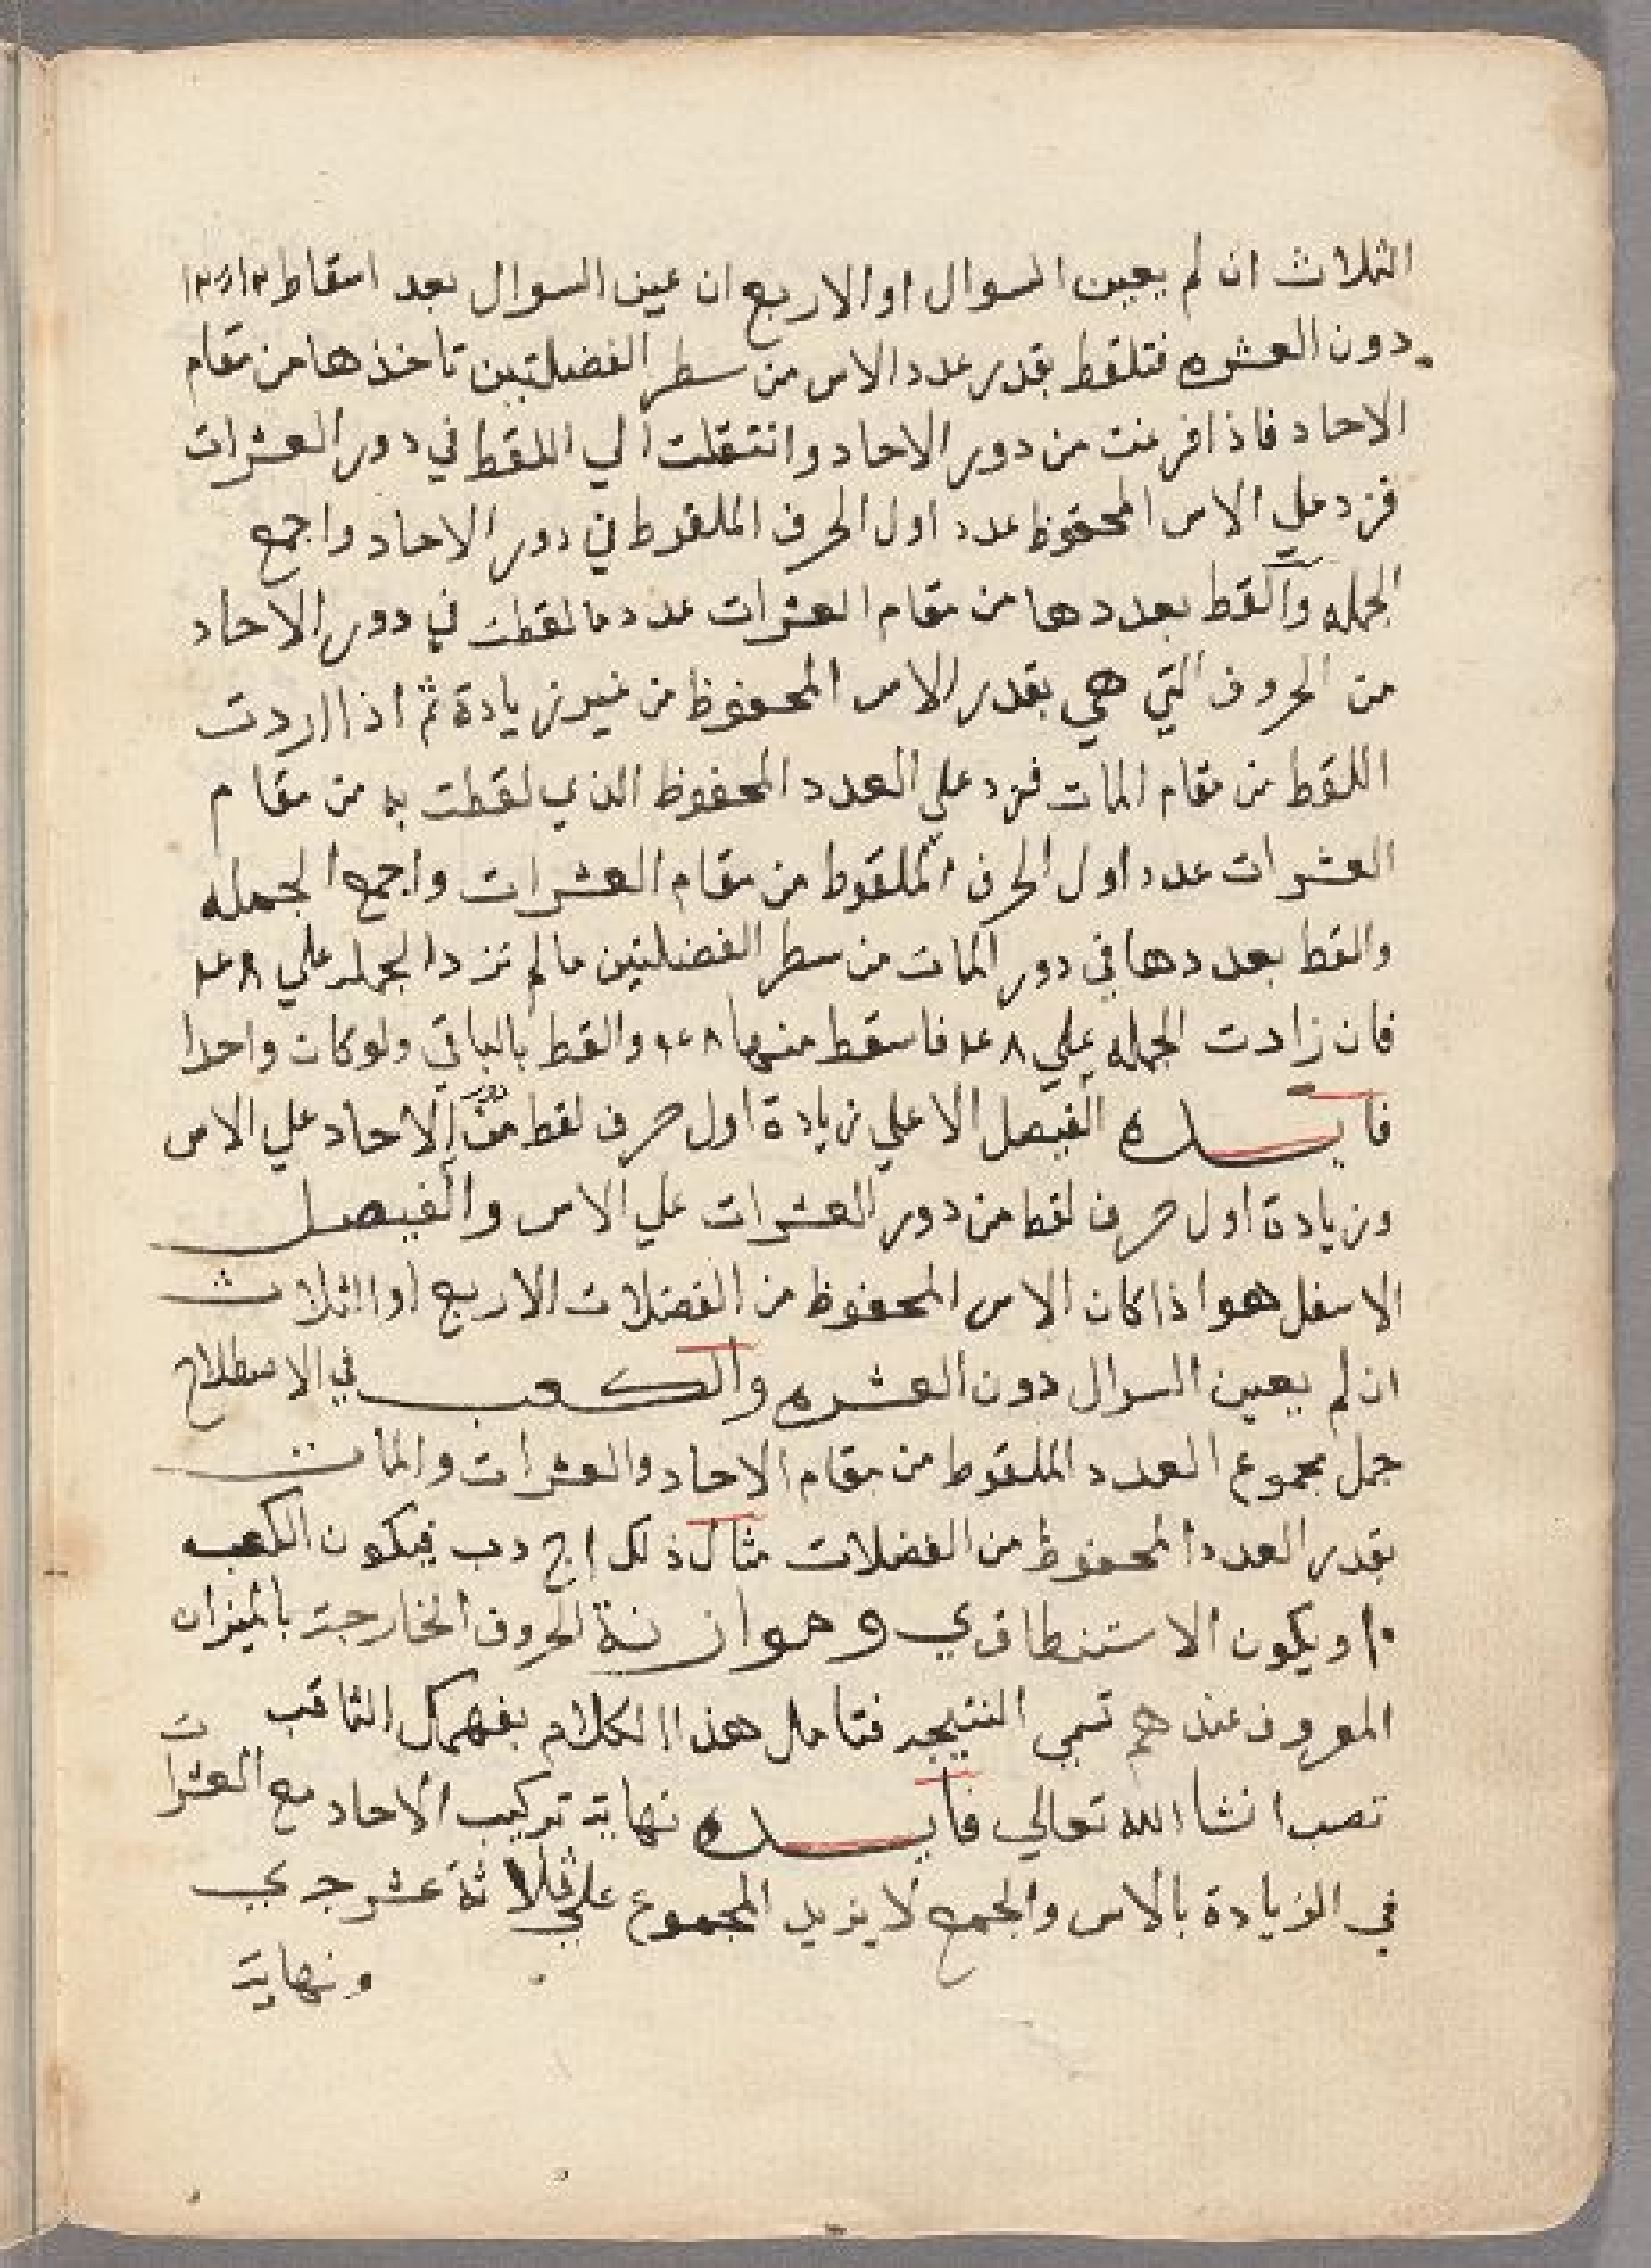 الثلاث ان لم يعين السوال او الاربع ان عين السوال بعد اسقاط ١٢ ١٢
دون العشره فتلقط بقدر عدد الاس من سطر الفضلتين تاخذها من مقام
الاحاد فاذا فرغت من دور الاحاد وانتقلت الي اللقط في دور العشرات
فزد علي الاس المحفوظ عدد اول الحرف الملقوط في دور الاحاد واجمع
الجمله والقط بعددها من مقام العشرات عدد ما لقطت في دور الاحاد
من الحروف التي هي بقدر الاس المحفوظ من غير زيادة ثم اذا اردت
اللقط من مقام المات فزد علي العدد المحفوظ الذي لقطت به من مقام
العشرات عدد اول الحرف الملقوط من مقام العشرات واجمع الجمله
والقط بعددها في دور المات من سطر الفضلتين ما لم تزد الجمله علي
فان زادت الجمله علي فاسقط منها والقط بالباقي ولو كان واحدا
فايده الفيصل الاعلي زيادة اول حرف لقط من دور الاحاد علي الاس
وزيادة اول حرف لقط من دور العشرات علي الاس والفيصل
الاسفل هو اذا كان الاس المحفوظ من الفضلات الاربع او الثلاث
ان لم يعين السوال دون العشره والكعب في الاصطلاح
جمل مجموع العدد الملقوط من مقام الاحاد والعشرات والمات
بقدر العدد المحفوظ من الفضلات مثال ذلك ا ج د ب فيكون الكعب
١٠ ويكون الاستنطاق ي وموازنة الحروف الخارجة بالميزان
المعروف عندهم تسمي النتيجه فتامل هذا الكلام بفهمك الثاقب
تصب انشا الله تعالي فايده نهاية تركيب الاحاد مع العشرات
في الزيادة بالاس والجمع لا يزيد المجموع علي ثلاثة عشر جي
ونهاية